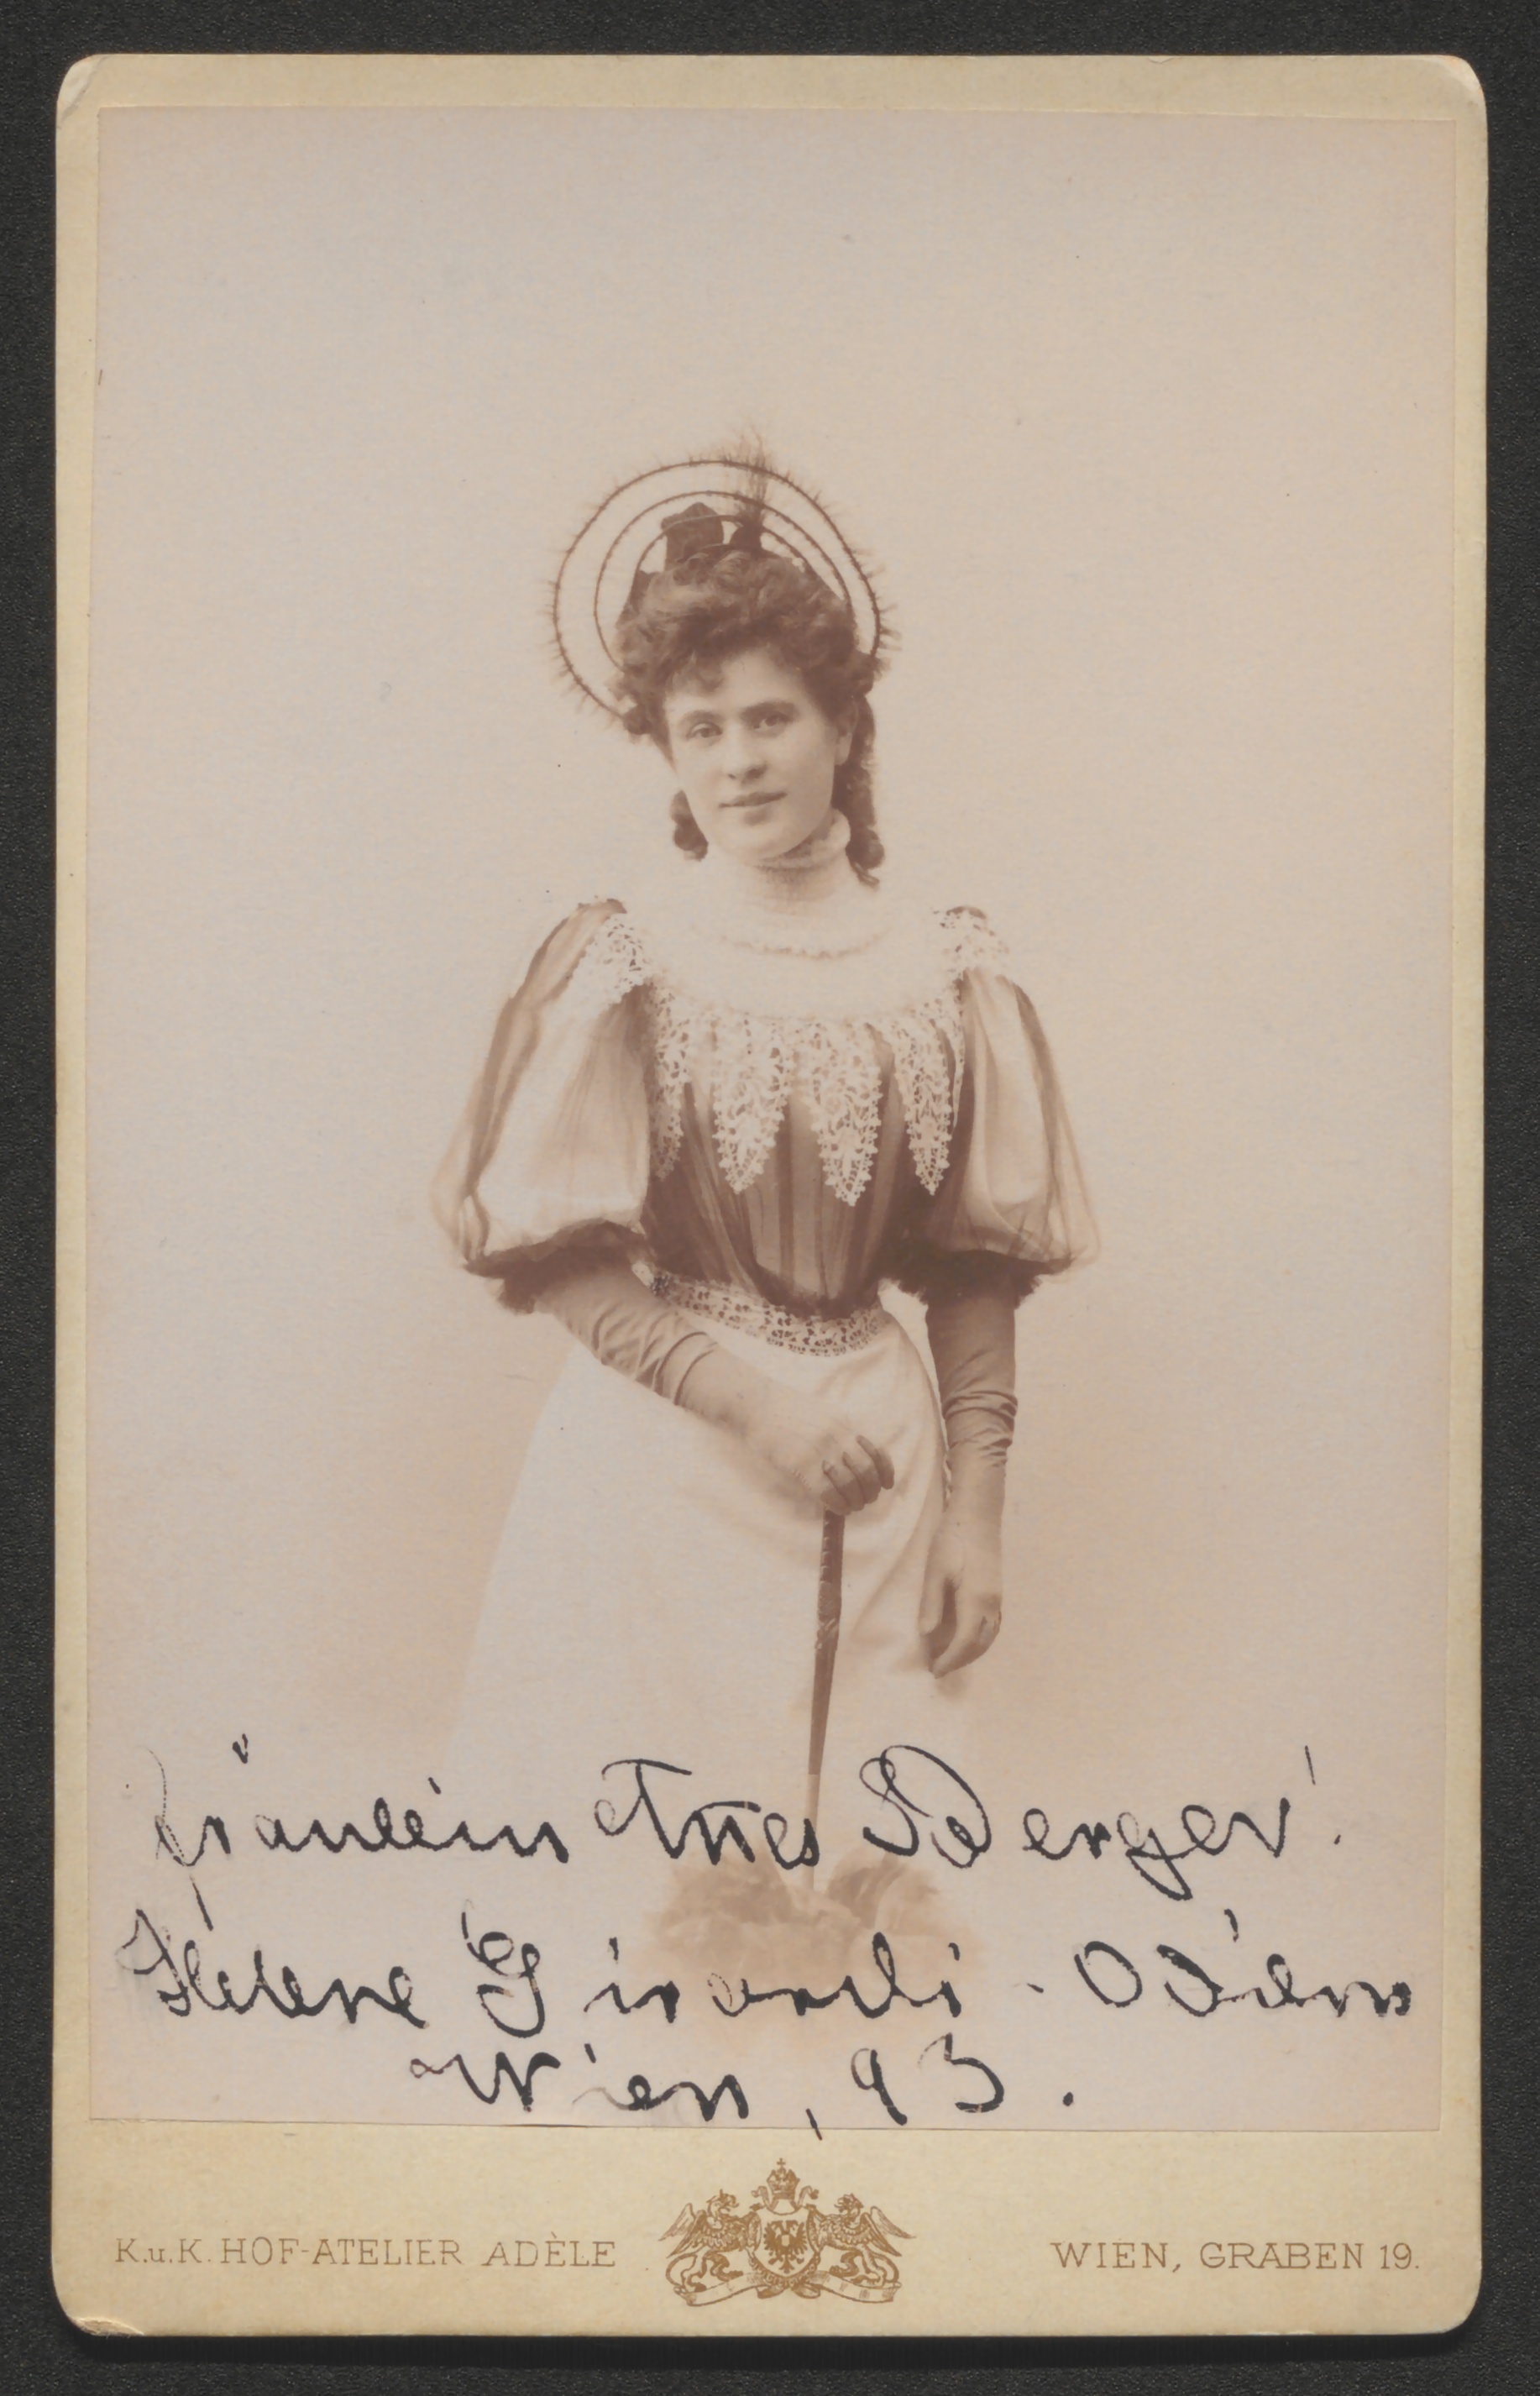 Fräulein Annes Berger!
Helene Girardi-Odilon
Wien, 93.
K.u.K. HOF-ATELIER ADÈLE
WIEN, GRABEN 19.